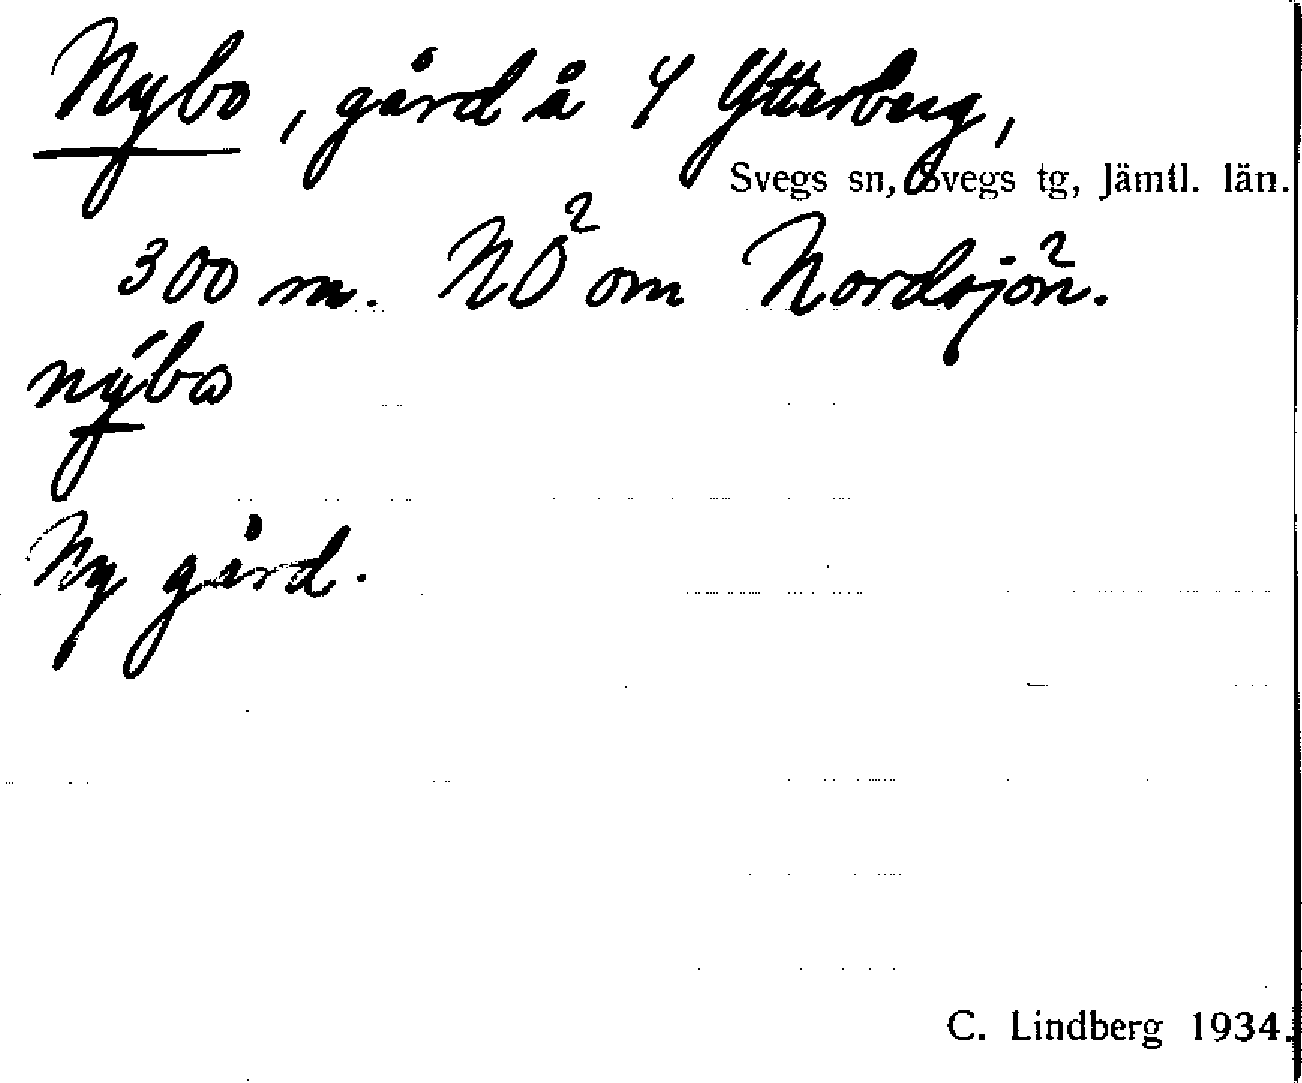 Nybo, gård å 4 Ytterberg,
Svegs sn, Svegs tg, Jämtl. län.
300 m. NÖ om Nordsjön.
nýbo
Ny gård.
C. Lindberg 1934.